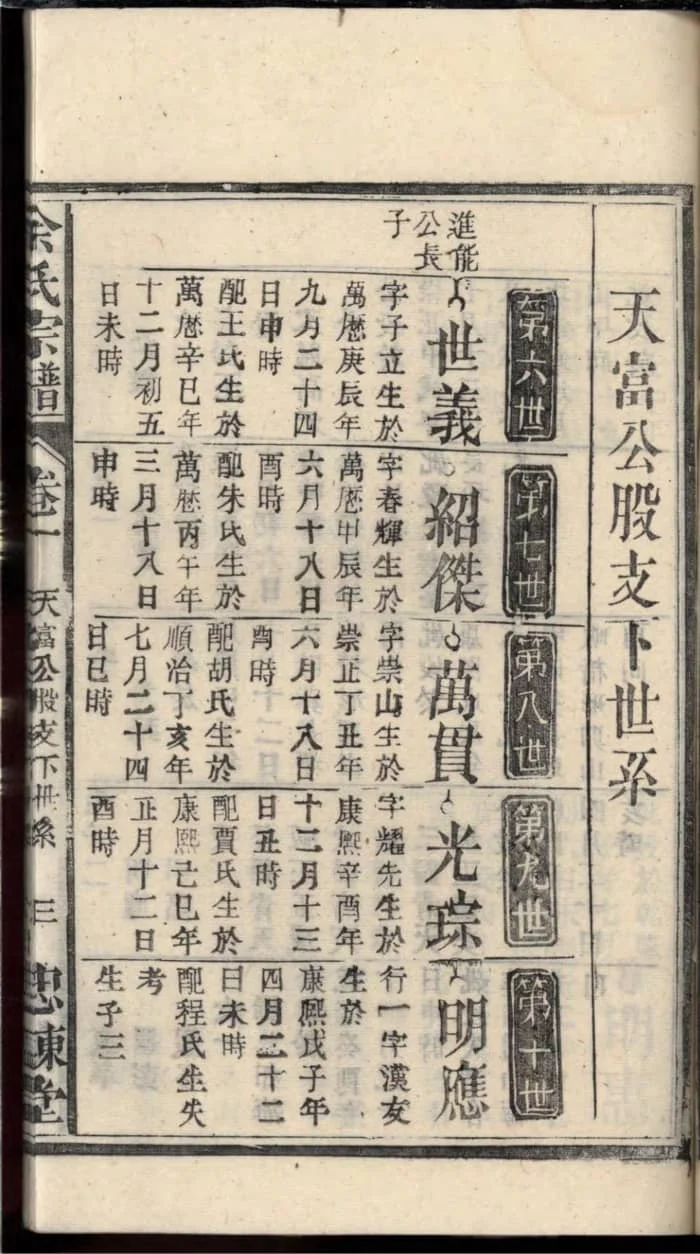 天富公股支下世系
第六世
進能
公長
子
世義
字子立生於
萬曆庚辰年
九月二十四
日申時
配王氏生於
萬曆辛巳年
十二月初五
日未時
第七世
紹傑
字春輝生於
萬曆甲辰年
六月十八日
酉時
配朱氏生於
萬曆丙午年
三月十八日
申時
第八世
萬貫
字崇山生於
崇正丁丑年
六月十八日
酉時
配胡氏生於
順治丁亥年
七月二十四
日巳時
第九世
光琮
字耀先生於
康熙辛酉年
十二月十三
日丑時
配賈氏生於
康熙己巳年
正月十二日
酉時
第十世
明應
行一字漢友
生於
康熙戊子年
四月二十二
日未時
配程氏生失
考
生子三
余氏宗譜
卷一
天富公股支下世系
三
忠 堂